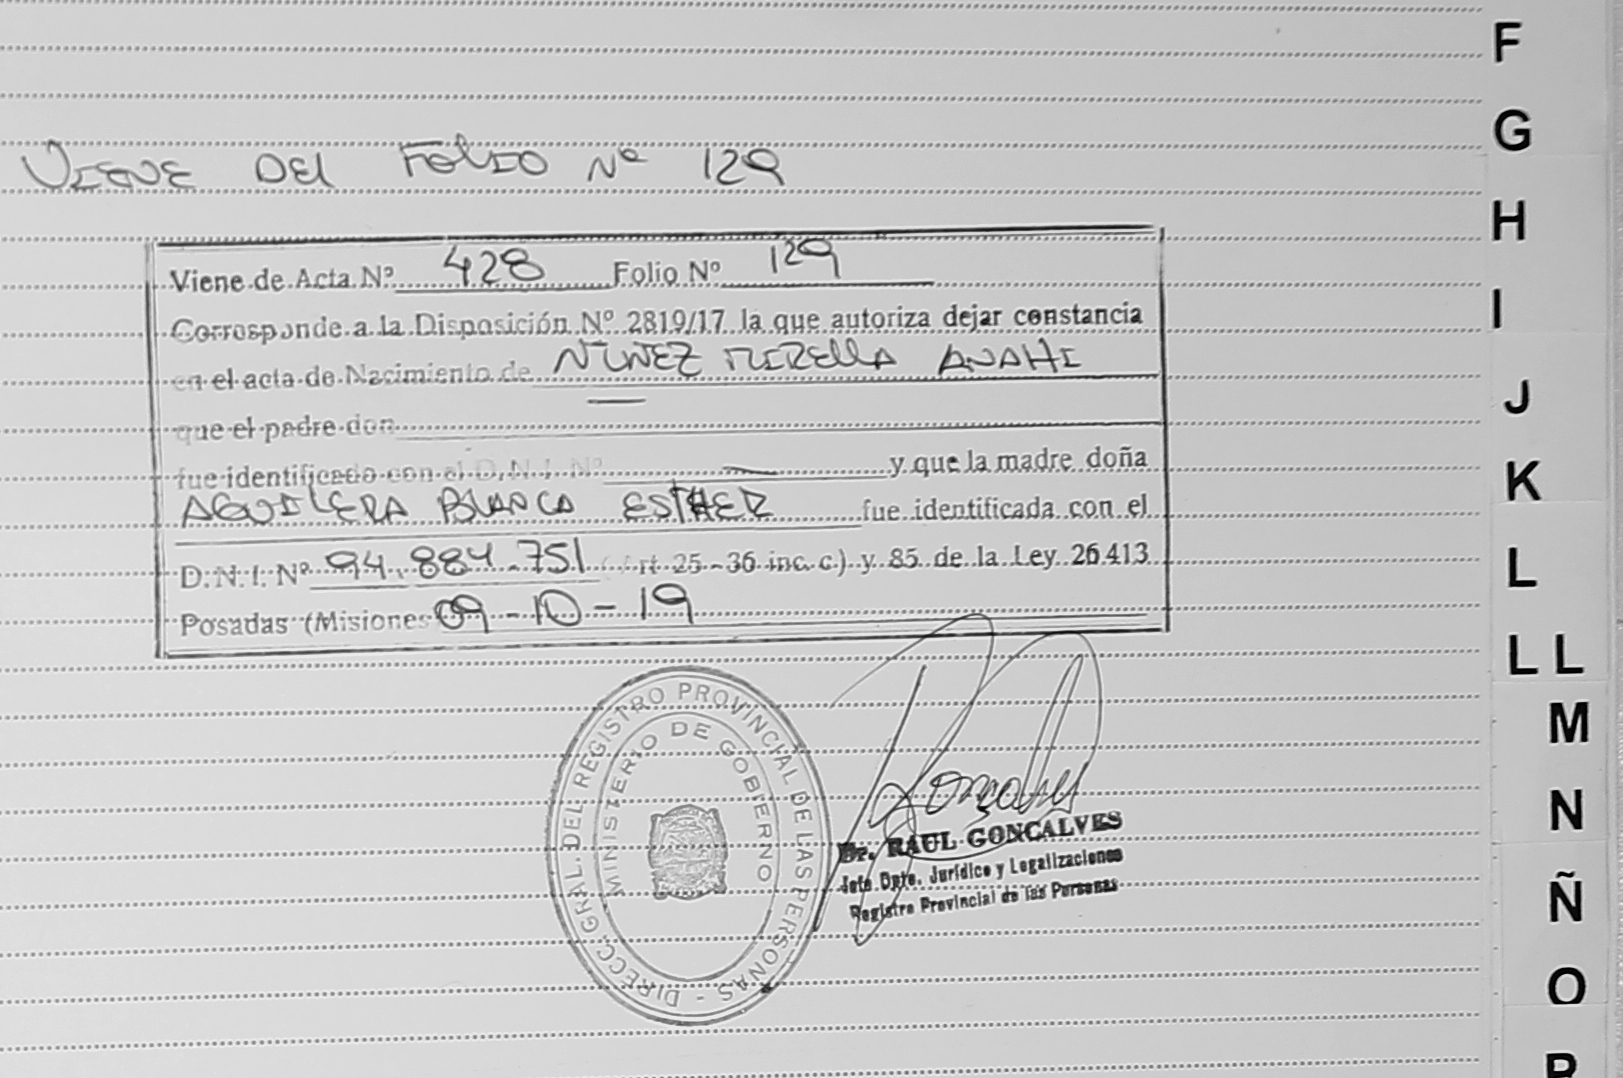 VIENE DEL FOLIO Nº 129
Viene de Acta Nº 428 Folio Nº 129
Corresponde a la Disposición Nº 2819/17 la que autoriza dejar constancia
en el acta de Nacimiento de NUÑEZ MIRELLA ANAHI
que el padre don
fue identificado con el D.N.I. Nº — y que la madre doña
AGUILERA BLANCA ESTHER fue identificada con el
D.N.I. Nº 94.884.751 (Art 25-36 inc. c.) y 85 de la Ley 26.413
Posadas (Misiones 09-10-19
DIRECC. GRAL. DEL REGISTRO PROVINCIAL DE LAS PERSONAS -
MINISTERIO DE GOBIERNO
Dr. RAUL GONCALVES
Jefe Dpto. Jurídico y Legalizaciones
Registro Provincial de las Personas
F
G
H
I
J
K
L
LL
M
N
Ñ
O
P